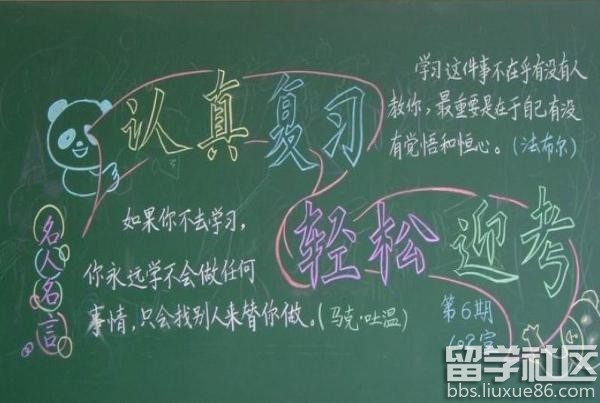 认真复习
学习这件事不在乎有没有人
教你,最重要是在于自己有没
有觉悟和恒心。(法布尔)
轻松迎考
名人名言
如果你不去学习,
你永远学不会做任何
事情,只会找别人来替你做。(马克·吐温)
第6期
留学社区
bbs.liuxue86.com